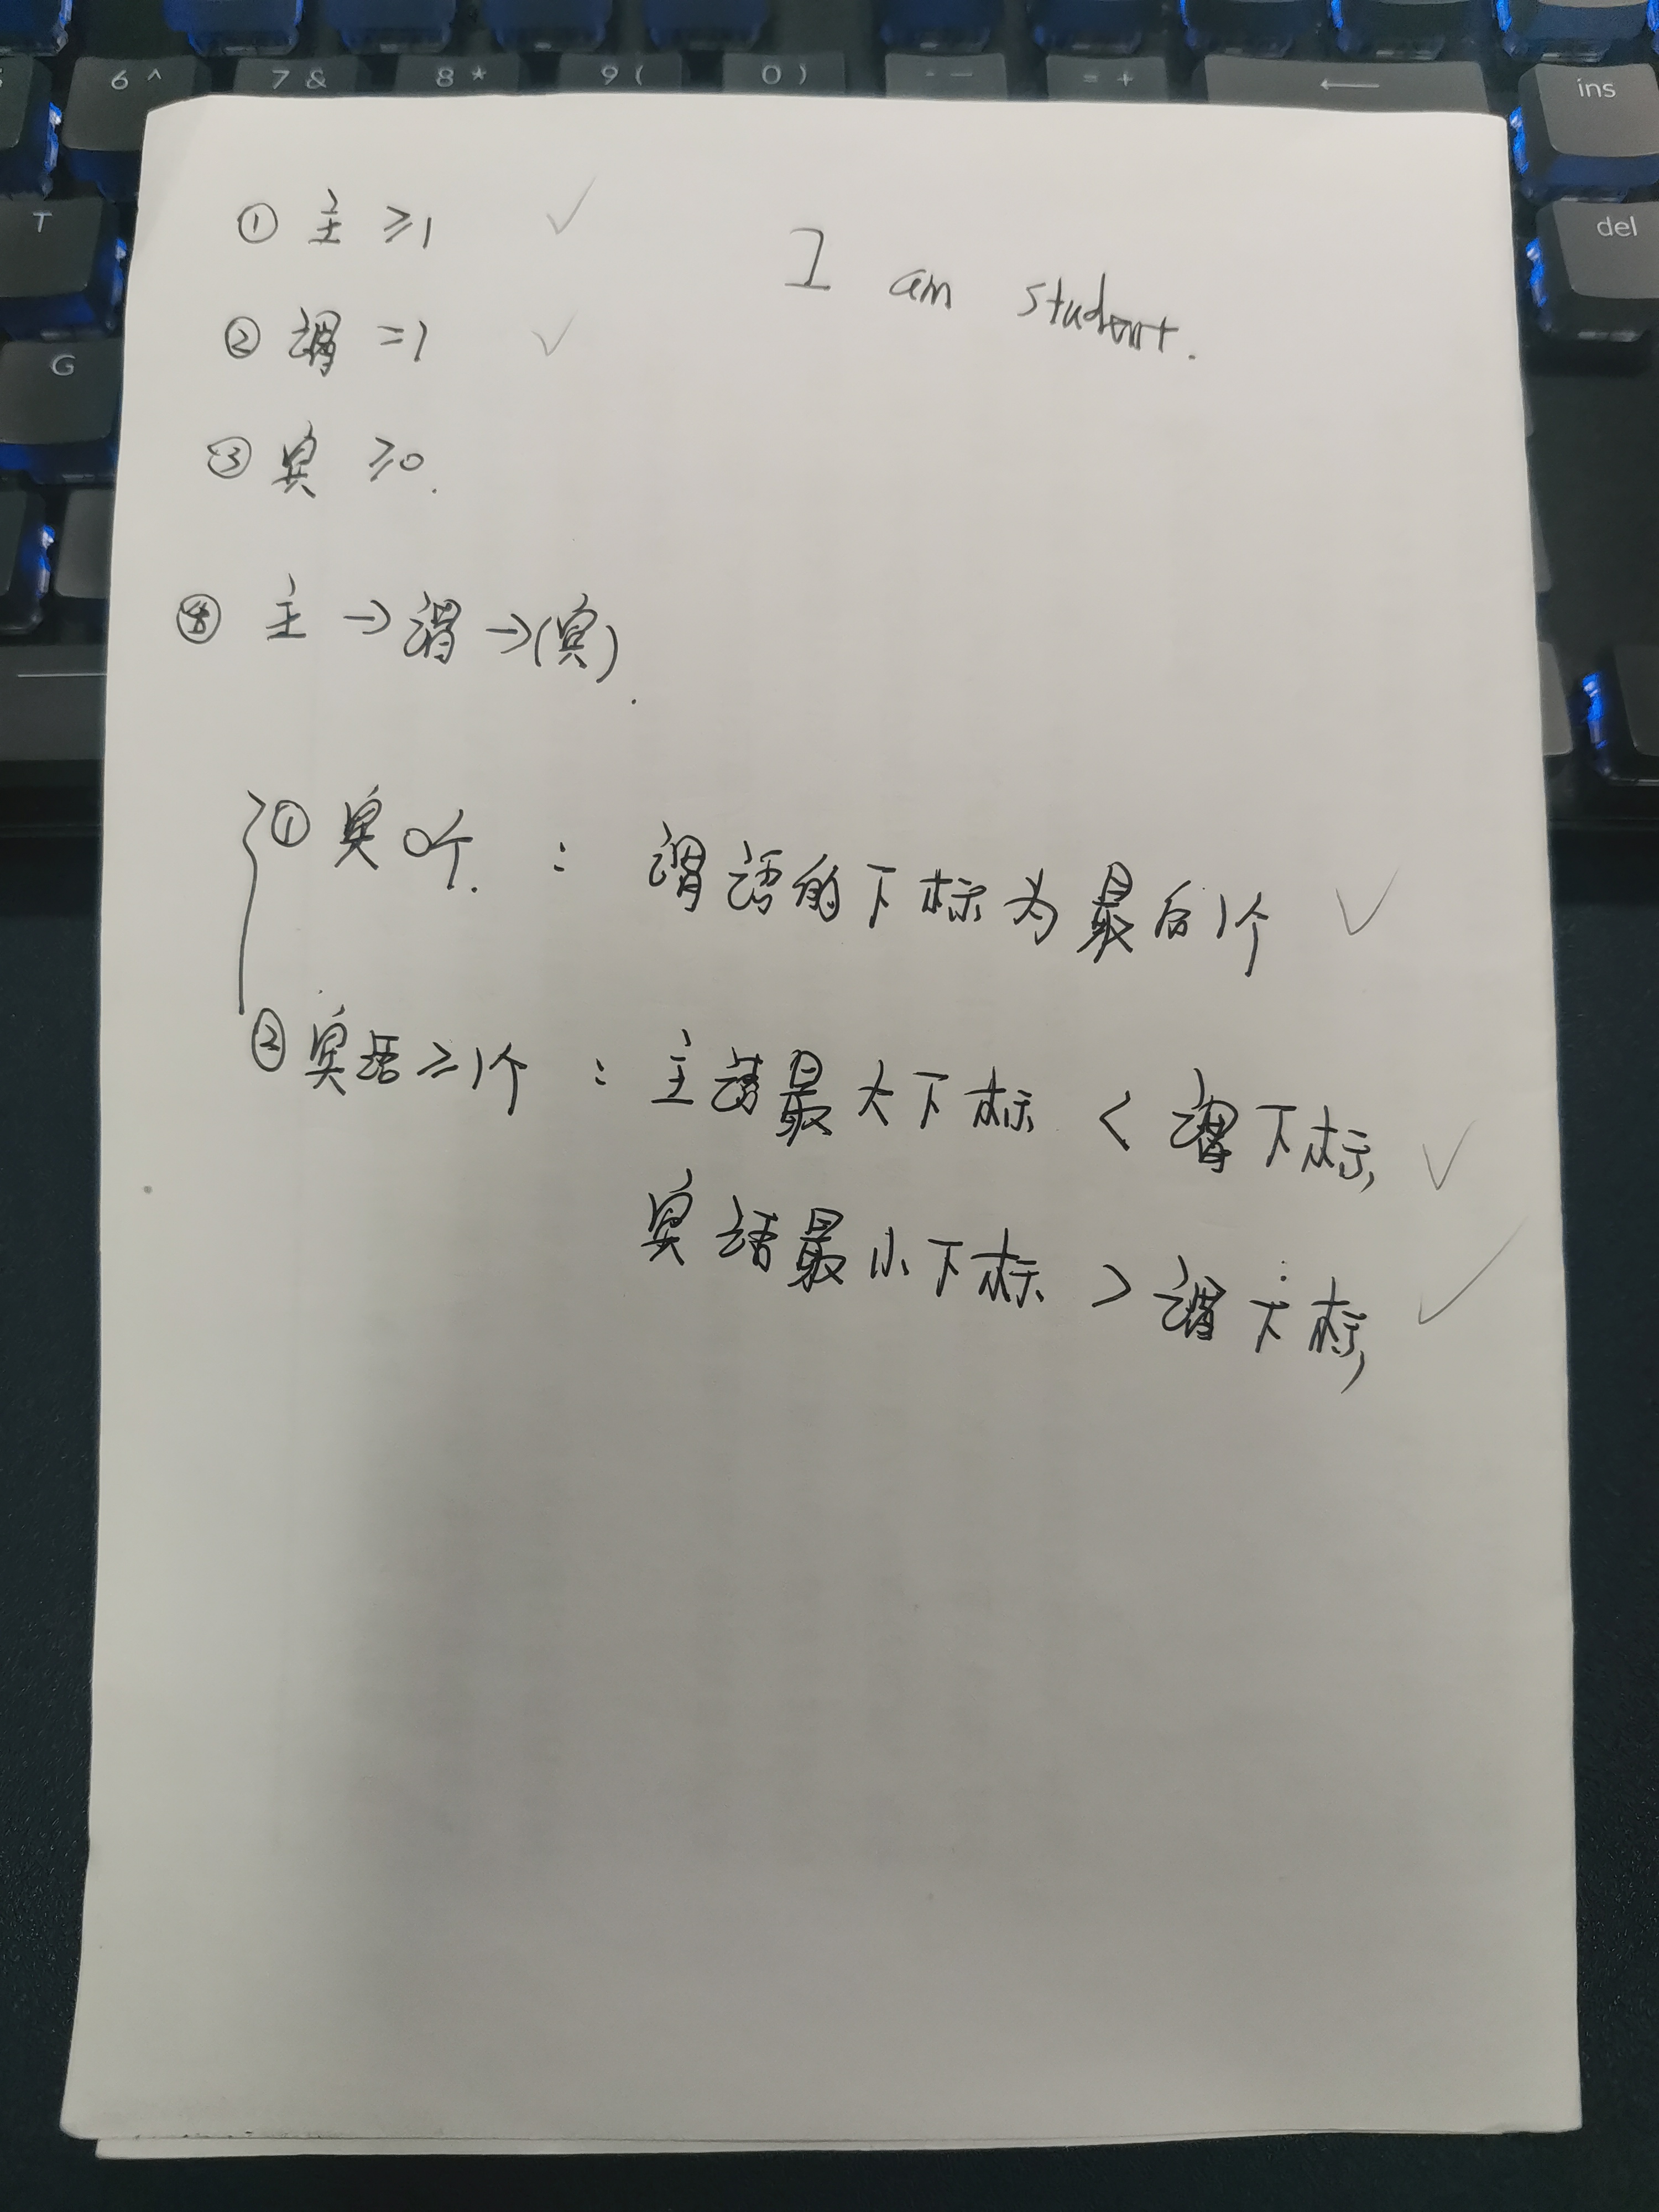 6 ^ 7 & 8 * 9 ( 0 ) - — = + ← ins
T del
G
① 主 ≥1 ✓
I am student.
② 谓 =1 ✓
③ 宾 ≥0.
④ 主 → 谓 → (宾).
① 宾 0个. : 谓语的下标为最后1个 ✓
② 宾语 ≥1个 : 主语最大下标 < 谓下标, ✓
宾语最小下标 > 谓下标, ✓